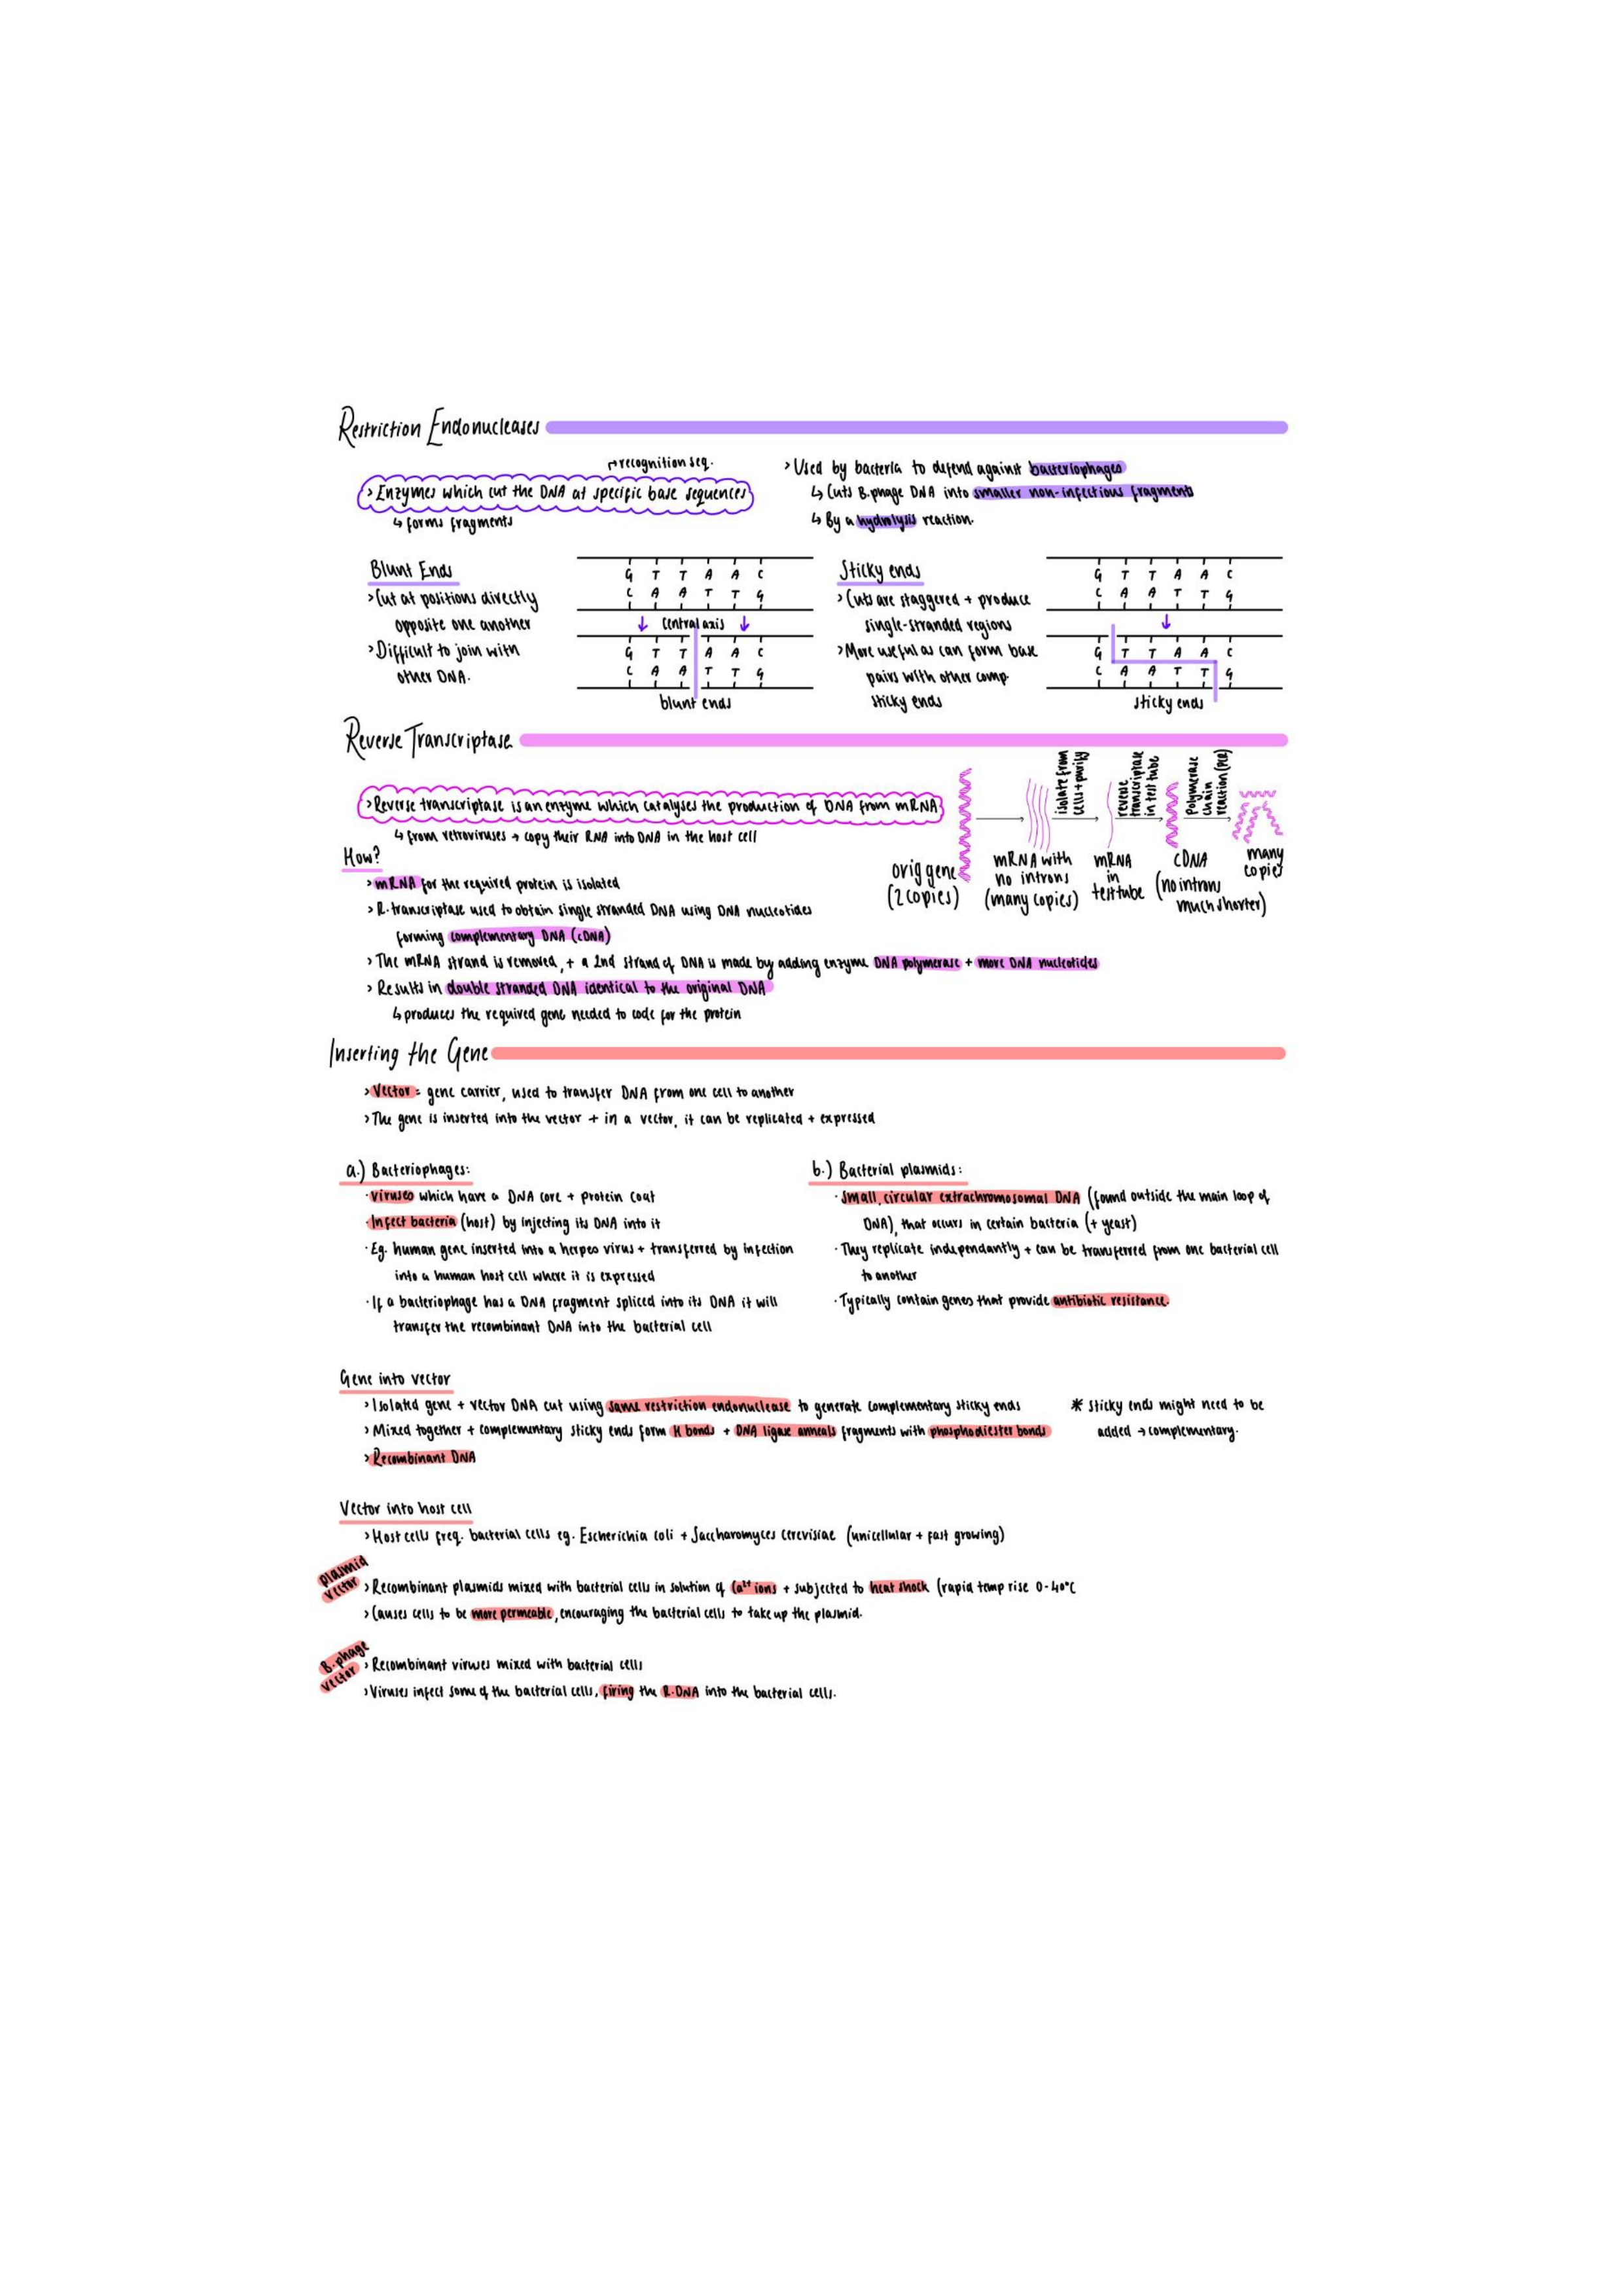 Restriction Endonucleases
↱recognition seq.
> Enzymes which cut the DNA at specific base sequences
↳ forms fragments
> Used by bacteria to defend against bacteriophages
↳ Cuts B.phage DNA into smaller non-infectious fragments
↳ By a hydrolysis reaction.
Blunt Ends
> Cut at positions directly
opposite one another
> Difficult to join with
other DNA.
G T T A A C
C A A T T G
↓ Central axis ↓
G T T A A C
C A A T T G
blunt ends
Sticky ends
> Cuts are staggered + produce
single-stranded regions
> More useful as can form base
pairs with other comp.
sticky ends
G T T A A C
C A A T T G
↓
G T T A A C
C A A T T G
sticky ends
Reverse Transcriptase
> Reverse transcriptase is an enzyme which catalyses the production of DNA from mRNA
↳ from retroviruses → copy their RNA into DNA in the host cell
orig gene
(2 copies)
mRNA with
no introns
(many copies)
isolate from
cells + purify
mRNA
in
test tube
reverse
transcriptase
in test tube
cDNA
(no introns
much shorter)
polymerase
chain
reaction (PCR)
many
copies
How?
> mRNA for the required protein is isolated
> R.transcriptase used to obtain single stranded DNA using DNA nucleotides
forming complementary DNA (cDNA)
> The mRNA strand is removed, + a 2nd strand of DNA is made by adding enzyme DNA polymerase + more DNA nucleotides
> Results in double stranded DNA identical to the original DNA
↳ produces the required gene needed to code for the protein
Inserting the Gene
> Vector = gene carrier, used to transfer DNA from one cell to another
> The gene is inserted into the vector + in a vector, it can be replicated + expressed
a.) Bacteriophages:
· viruses which have a DNA core + protein coat
· Infect bacteria (host) by injecting its DNA into it
· Eg. human gene inserted into a herpes virus + transferred by infection
into a human host cell where it is expressed
· If a bacteriophage has a DNA fragment spliced into its DNA it will
transfer the recombinant DNA into the bacterial cell
b.) Bacterial plasmids:
· small, circular extrachromosomal DNA (found outside the main loop of
DNA), that occurs in certain bacteria (+ yeast)
· They replicate independantly + can be transferred from one bacterial cell
to another
· Typically contain genes that provide antibiotic resistance.
Gene into vector
> Isolated gene + vector DNA cut using same restriction endonuclease to generate complementary sticky ends
> Mixed together + complementary sticky ends form H bonds + DNA ligase anneals fragments with phosphodiester bonds
> Recombinant DNA
* sticky ends might need to be
added → complementary.
Vector into host cell
> Host cells freq. bacterial cells eg. Escherichia coli + Saccharomyces cerevisiae (unicellular + fast growing)
plasmid
vector
> Recombinant plasmids mixed with bacterial cells in solution of Ca²⁺ ions + subjected to heat shock (rapid temp rise 0-40°C
> Causes cells to be more permeable, encouraging the bacterial cells to take up the plasmid.
B.phage
vector
> Recombinant viruses mixed with bacterial cells
> Viruses infect some of the bacterial cells, firing the R.DNA into the bacterial cells.